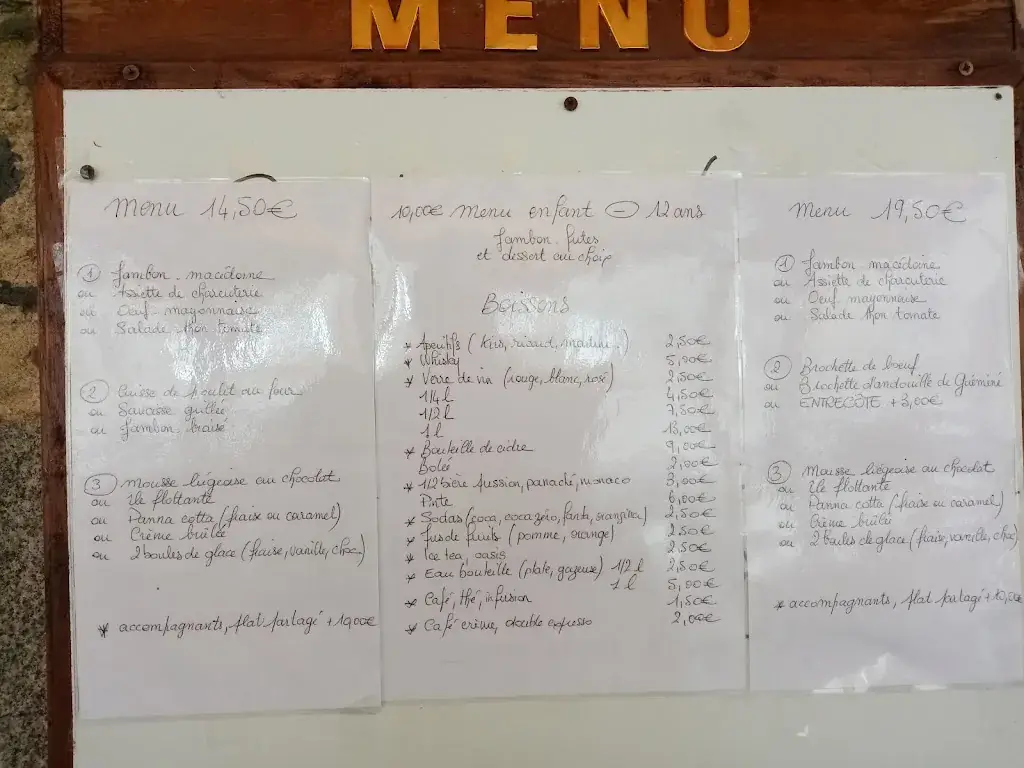 MENU
Menu 14,50€
① Jambon macédoine
ou Assiette de charcuterie
ou Oeuf mayonnaise
ou Salade thon tomate
② Cuisse de poulet au four
ou Saucisse grillée
ou Jambon braisé
③ Mousse liégeoise au chocolat
ou Ile flottante
ou Panna cotta (fraise ou caramel)
ou Crème brûlée
ou 2 boules de glace (fraise, vanille, choc)
* accompagnants, plat partagé +10,00€
10,00€ Menu enfant - 12 ans
Jambon frites
et dessert au choix
Boissons
* Apéritifs (Kirs, ricard, martini..) 2,50€
* Whisky 5,00€
* Verre de vin (rouge, blanc, rosé) 2,50€
1/4 l 4,50€
1/2 l 7,50€
1 l 13,00€
* Bouteille de cidre 9,00€
Bolée 2,00€
* 1/2 bière pression, panaché, monaco 3,00€
Pinte 6,00€
* Sodas (coca, coca zéro, fanta, orangina) 2,50€
* Jus de fruits (pomme, orange) 2,50€
* Ice tea, oasis 2,50€
* Eau bouteille (plate, gazeuse) 1/2 l 2,50€
1 l 5,00€
* Café, thé, infusion 1,50€
* Café crème, double expresso 2,00€
Menu 19,50€
① Jambon macédoine
ou Assiette de charcuterie
ou Oeuf mayonnaise
ou Salade thon tomate
② Brochette de boeuf
ou Brochette d'andouille de Guémené
ou ENTRECÔTE +3,00€
③ Mousse liégeoise au chocolat
ou Ile flottante
ou Panna cotta (fraise ou caramel)
ou Crème brûlée
ou 2 boules de glace (fraise, vanille, choc)
* accompagnants, plat partagé +10,00€